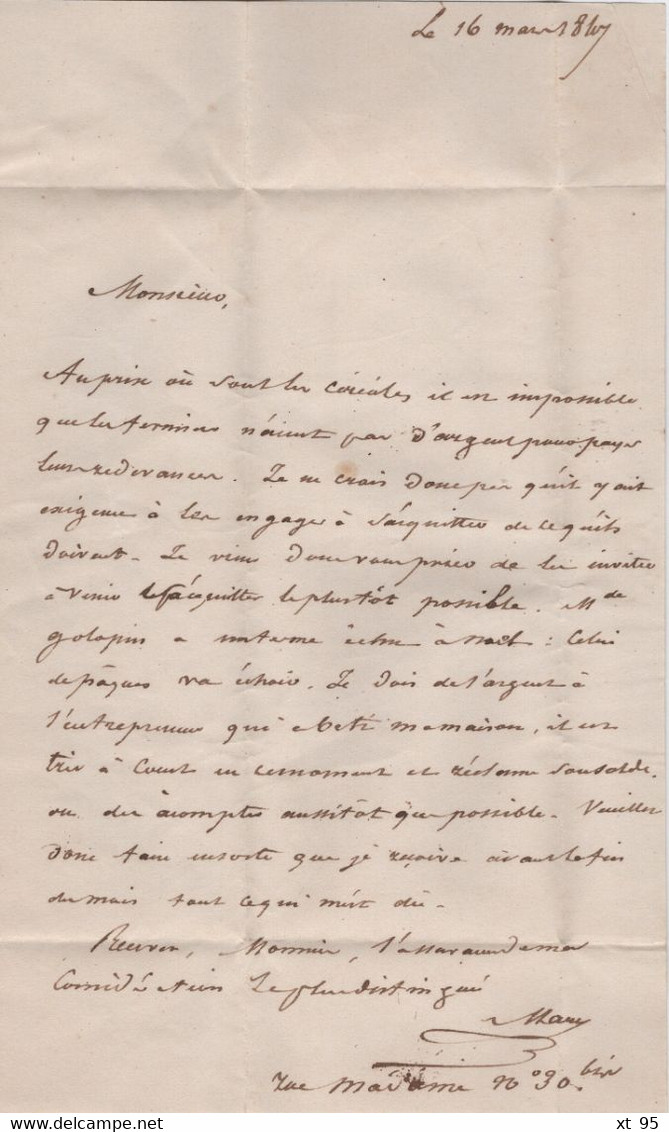 Le 16 mars 1847
Monsieur,
Au prix où sont les céréales il est impossible
que les fermiers n'aient pas d'argent pour payer
leurs redevances. Je ne crois donc pas qu'il y ait
exigence à les engager à s'acquitter de ce qu'ils
doivent. Je viens donc vous prier de les inviter
à venir s'acquitter le plustôt possible. M de
golopin a un terme échu à noël : Celui
de pâques va échoir. Je dois de l'argent à
l'entrepreneur qui a bâti ma maison, il est
très à Court en ce moment et réclame son solde.
ou des àcomptes aussitôt que possible. Veuillez
donc faire ensorte que je reçoive avant la fin
du mois tout ce qui m'est dû.
Recevez, Monsieur, l'assurance de ma
Considération la plus distinguée
Mary
rue Madame n° 30 bis
xt 95